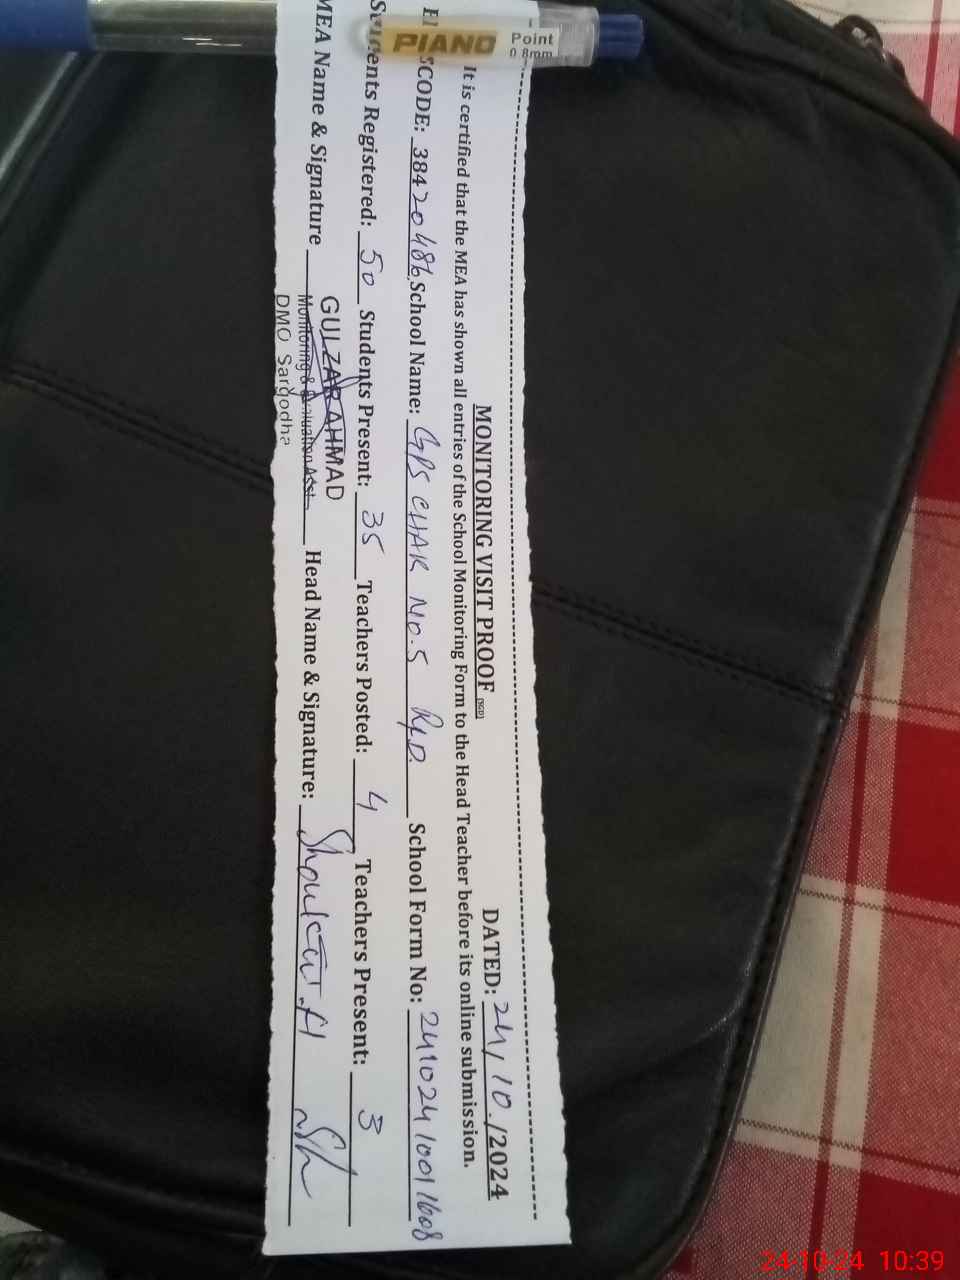 PIANO Point
0.8mm
MONITORING VISIT PROOF (SGD) DATED: 24/10/2024
It is certified that the MEA has shown all entries of the School Monitoring Form to the Head Teacher before its online submission.
SCODE: 38420486 School Name: GPS CHAK No.5 School Form No: 24102410011608
Students Registered: 50 Students Present: 35 Teachers Posted: 4 Teachers Present: 3
MEA Name & Signature GULZAR AHMAD Head Name & Signature:
Monitoring & Evaluation Asst.
DMO Sargodha
24-10-24 10:39